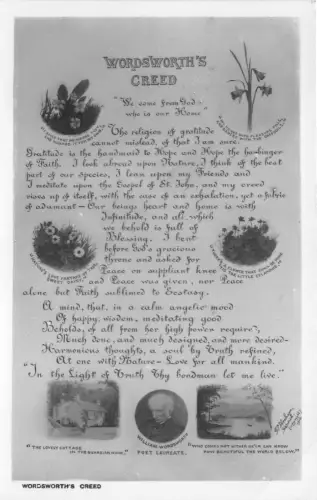 WORDSWORTH'S
CREED
"We come from God
who is our Home"
The religion of gratitude
cannot mislead, of that I am sure.
Gratitude is the handmaid to Hope and Hope the harbinger
of Faith. I look abroad upon Nature, I think of the best
part of our species, I lean upon my Friends and
I meditate upon the Gospel of St. John, and my creed
rises up of itself, with the ease of an exhalation, yet a fabric
of adamant – Our being's heart and home is with
Infinitude, and all which
we behold is full of
Blessing. I bent
before God's gracious
throne and asked for
Peace on suppliant knee
and Peace was given, nor Peace
alone but Faith sublimed to Ecstasy.
A mind, that, in a calm angelic mood
Of happy wisdom, meditating good
Beholds, of all from her high power required,
Much done, and much designed, and more desired-
Harmonious thoughts, a soul by Truth refined,
At one with Nature - Love for all mankind.
"In the Light of Truth Thy bondman let me live."
"THE LOVELY COTTAGE
IN THE GUARDIAN NOOK."
WILLIAM WORDSWORTH
POET LAUREATE.
HOW BEAUTIFUL THE WORLD BELOW."
WORDSWORTH'S CREED